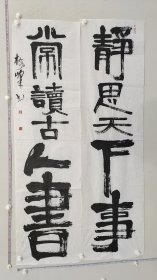 靜思天下事
常讀古人書